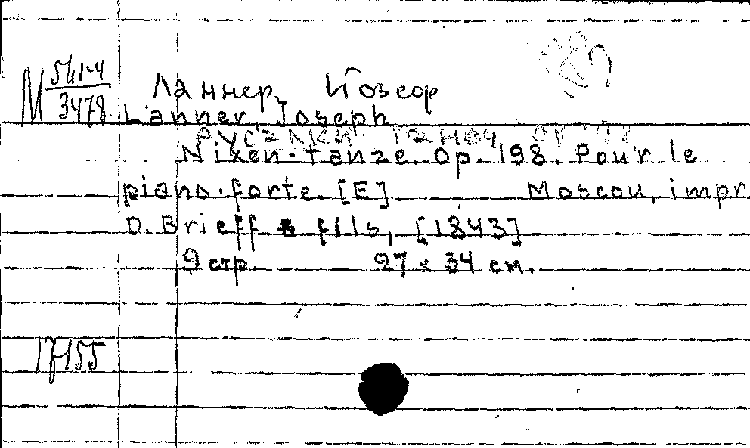 М 541-4
3478
Ланнер, Йозеф
Lanner, Joseph
Nixen-tänze. Op. 198. Pour le
piano-forte. [E] Moscou, impr
D. Brieff & fils, [1843]
9 стр. 27 x 34 см.
17-155